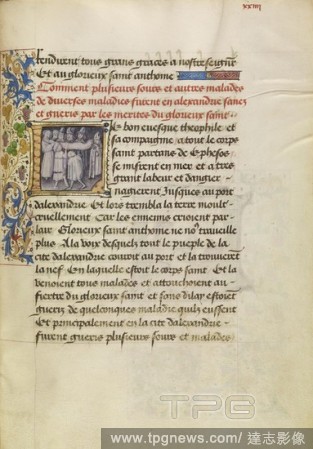 xxiiij
rendirent tous grans graces a nostre seigneur
Et au glorieux saint anthoine
Comment plusieurs sours et autres malades
de diverses maladies furent en alexandrie sanez
et gueris par les merites du glorieux saint
Le bon evesque theophile et
sa compaignie a tout le corps
saint partans de
se misrent en mer et a tres
grant labeur et dangier
nagierent Jusques au port
dalexandrie Et lors trembla la terre moult
cruellement Car les ennemis crioient par
lair Glorieux saint anthoine ne nous traveille
plus A la voix desquelz tout le pueple de la
cite dalexandrie couroit au port et la trouverent
la nef En laquelle estoit le corps saint Et la
venoient tous malades et attouchoient au
fiertre du glorieux saint et sans dilay estoient
gueris de quelconques maladie quilz eussent
Et principalement en la cite dalexandrie
furent gueris plusieurs sours et malades
TPG
www.tpgnews.com/ 達志影像